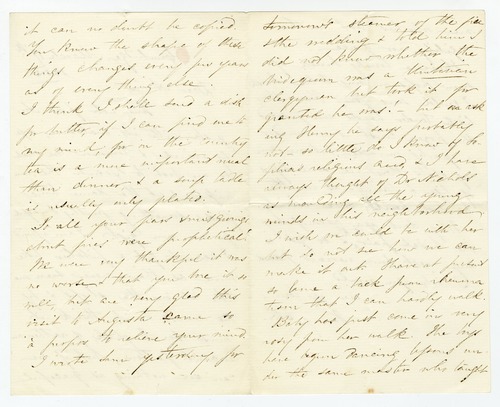 it can no doubt be copied.
You know the shape of these
things changes every few years
as of every thing else.
I think I shall send a dish
for butter if I can find one to
my mind, for in the country
tea is a more important meal
than dinner & a soup ladle
is usually only plated.
So all your fears & misgivings
about fires were prophetical!
We are very thankful it was
no worse & that you bore it so
well, but are very glad this
visit to Augusta came so
a propos to relieve your mind.
I wrote Jane yesterday for
tomorrow's steamer of the
& the wedding & told him I
did not know whether the
bridegroom was a Unitarian
clergyman but took it for
granted he was! - but on ask
ing Henry he says probably
not - so little do I know of
religious & I have
always thought of Dr Nichols
as moulding all the young
minds in this neighborhood
I wish we could be with her
but do not see how we can
make it out. There at present
so lame a back from rheuma
tism that I can hardly walk.
Baby has just come in very
rosy from her walk. The boys
have begun Dancing lessons un
der the same master who taught